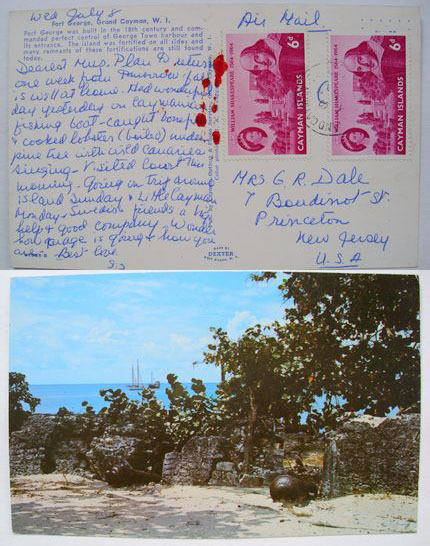 Wed July 8
Fort George, Grand Cayman, W. I.
Fort George was built in the 18th century and com-
manded perfect control of George Town harbour and
its entrance. The island was fortified on all sides and
many remnants of these fortifications are still found
today.
Dearest Mrs. Plan to return
one week from tomorrow
is well at home. Had wonderful
day yesterday on Caymanian
fishing boat - caught
& cooked lobster (boiled) under
pine tree with wild canaries
singing - Visited Court this
morning. Going on trip around
island Sunday & Little Cayman
Monday - Swedish friends a big
help & good company - Wonder
how is going & how you
are - Best love
Air Mail
WILLIAM SHAKESPEARE 1564-1964
6d
CAYMAN ISLANDS
WILLIAM SHAKESPEARE 1564-1964
6d
CAYMAN ISLANDS
MRS G. R. Dale
7 Boudinot St.
Princeton
New Jersey
U.S.A
MADE BY
DEXTER
WEST NYACK, N. Y.